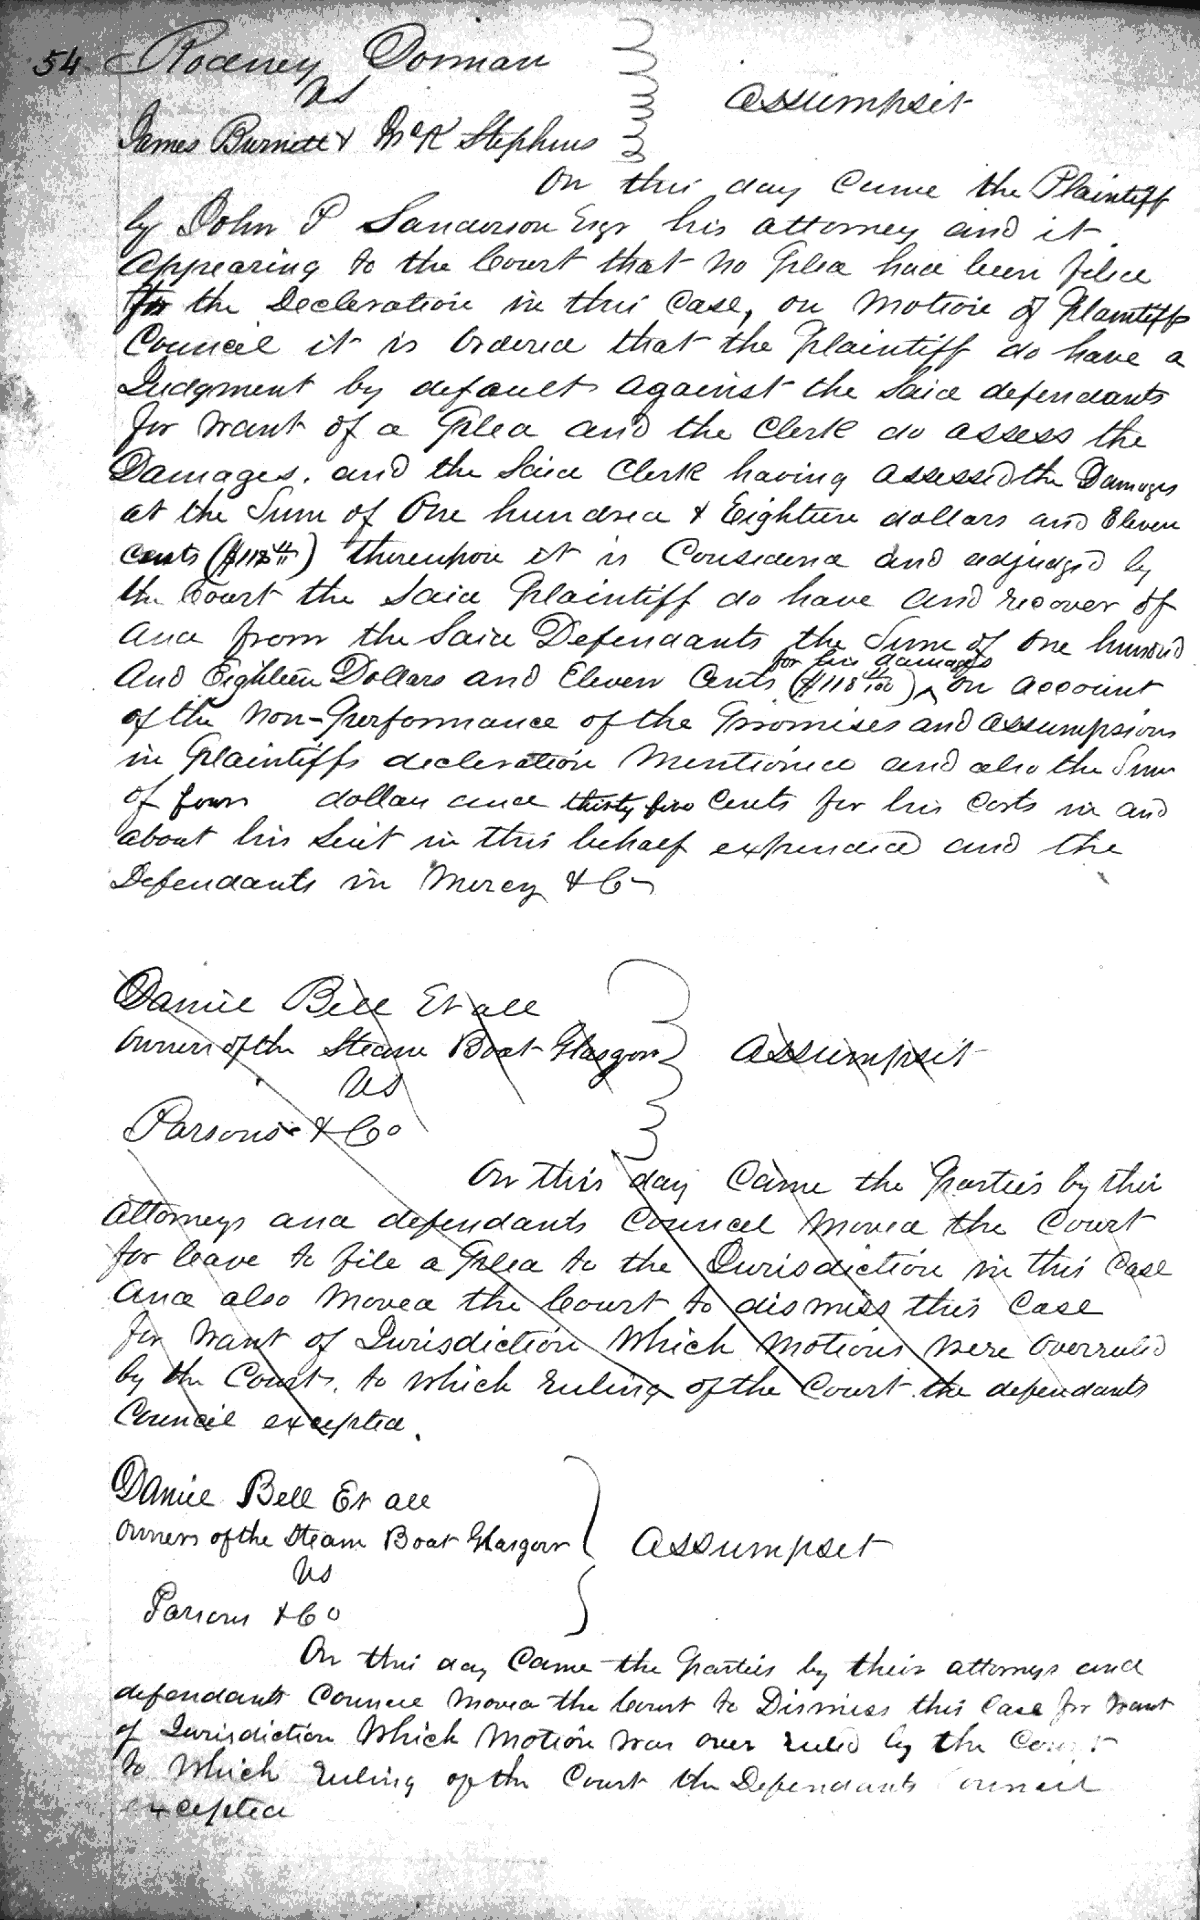 54 Rodney Dorman
vs
assumpsit
James Burnett & McK Stephens
On this day came the Plaintiff
by John P Sanderson Esqr his attorney and it
appearing to the Court that no Plea had been filed
to the Decleration in this Case, on Motion of Plaintiffs
Council it is Ordered that the Plaintiff do have a
Judgment by default against the Said defendants
for want of a Plea and the Clerk do assess the
Damages. and the Said Clerk having assessed the Damages
at the Sum of One hundred & Eighteen dollars and Eleven
cents ($118 11) thereupon it is Considered and adjudged by
the Court the Said Plaintiff do have and recover of
and from the Said Defendants the Sum of One hundred
for his damages
And Eighteen Dollars and Eleven Cents ($118 11/100) ^ on account
of the Non-Performance of the Promises and assumpsions
in Plaintiffs decleration Mentioned and also the Sum
of four dollars and thirty five Cents for his Costs in and
about his Suit in this behalf expended and the
Defendants in Mercy &C
Daniel Bell Et all
Owners of the Steam Boat Glasgow
assumpsit
vs
Parsons & Co
On this day Came the Parties by their
attorneys and defendants Council Moved the Court
for leave to file a Plea to the Jurisdiction in this Case
And also Moved the Court to dismiss this Case
for want of Jurisdiction Which Motions were overruled
by the Court. to which ruling of the Court the defendants
Council excepted.
Daniel Bell Et all
Owners of the Steam Boat Glasgow
assumpset
vs
Parsons & Co
On this day Came the Parties by their attorneys and
defendants Council Moved the Court to Dismiss this Case for want
of Jurisdiction Which Motion was over ruled by the Court
to Which ruling of the Court the Defendants Council
excepted